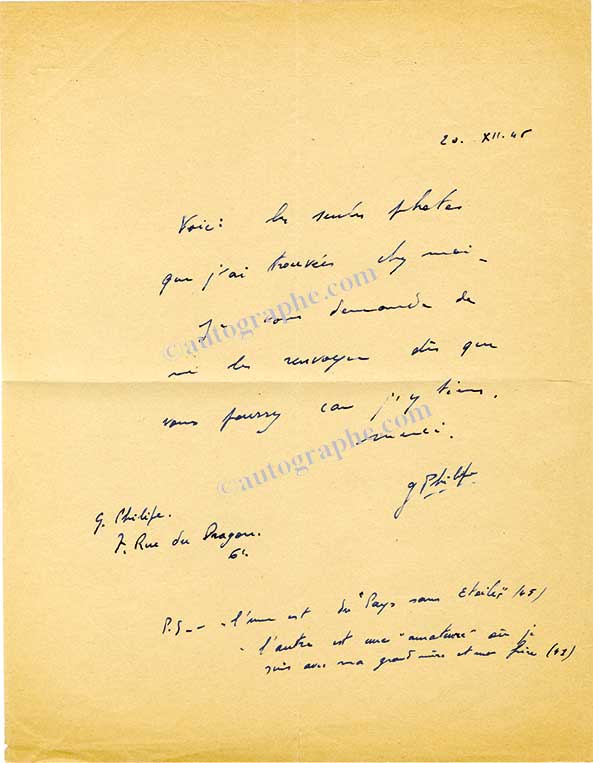 20. XII. 45
Voici les seules photos
que j'ai trouvées chez moi_
Je vous demande de
me les renvoyer dès que
vous pourrez car j'y tiens.
merci.
G Philipe
G. Philipe.
7. Rue du Dragon.
6e.
P.S_ _ - l'une est du "Pays sans Etoiles" (45)
- l'autre est une "amateure" où je
suis avec ma grand mère et mon frère (43)
©autographe.com
©autographe.com